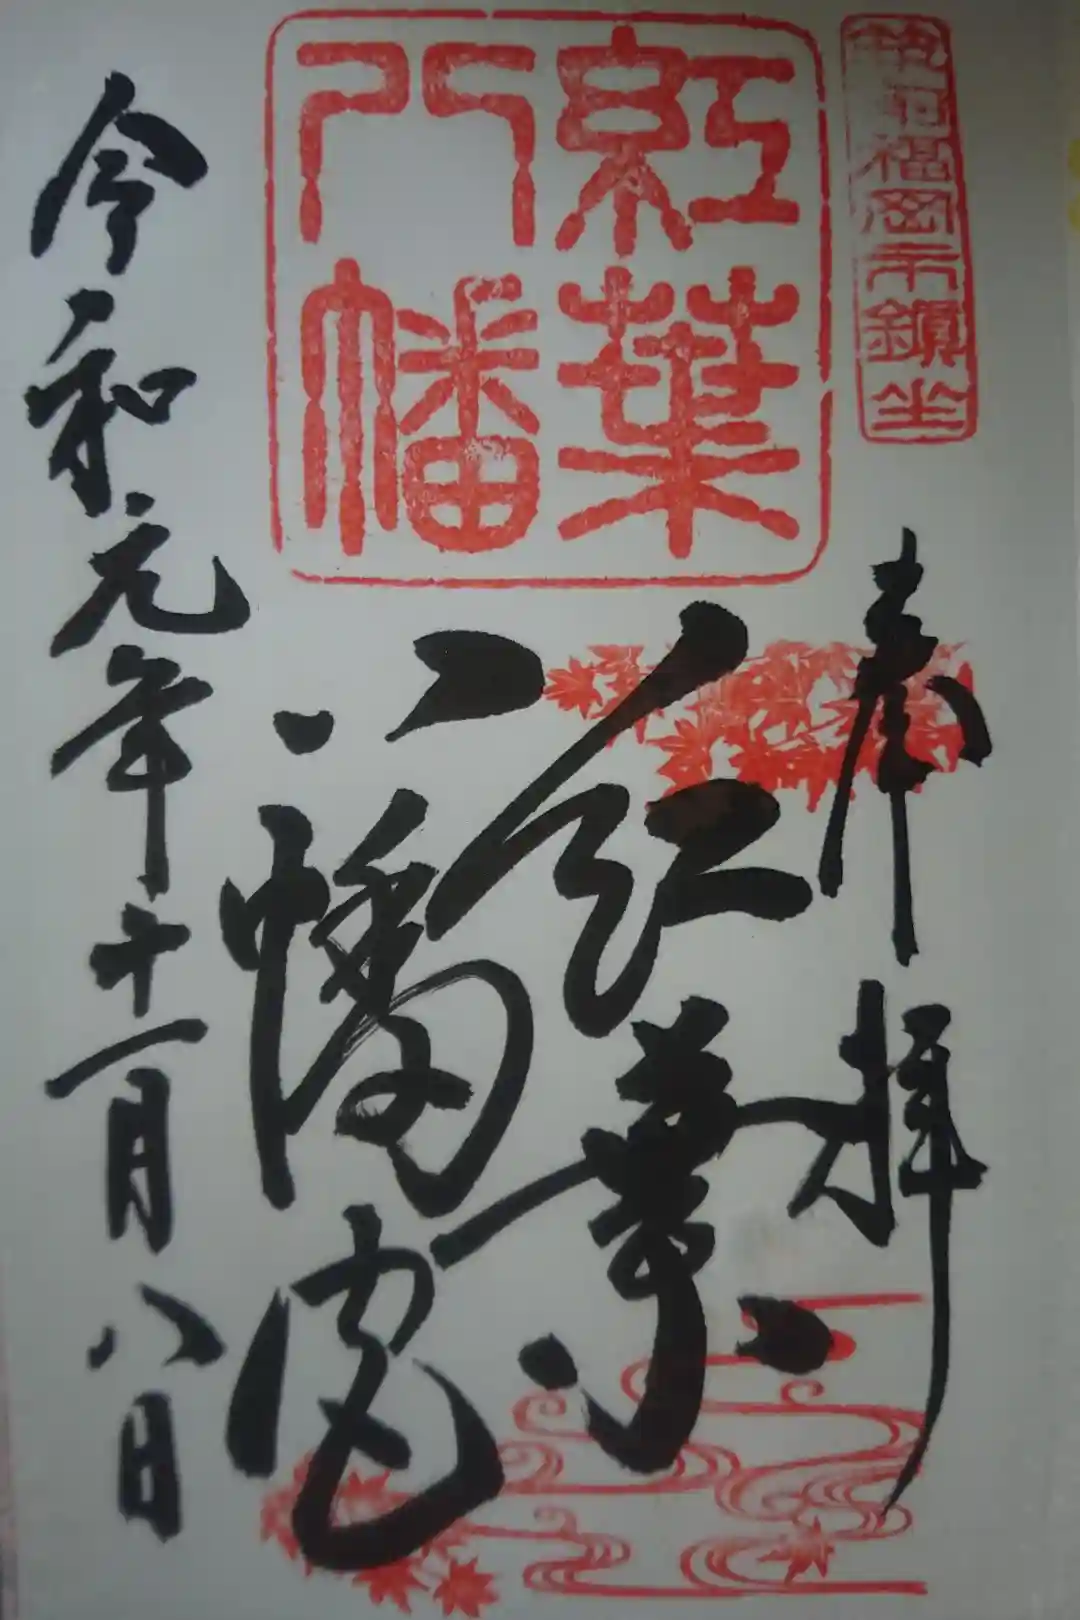 福岡市鎮坐
奉拝
紅葉
八幡
紅葉
八幡宮
令和元年十一月八日